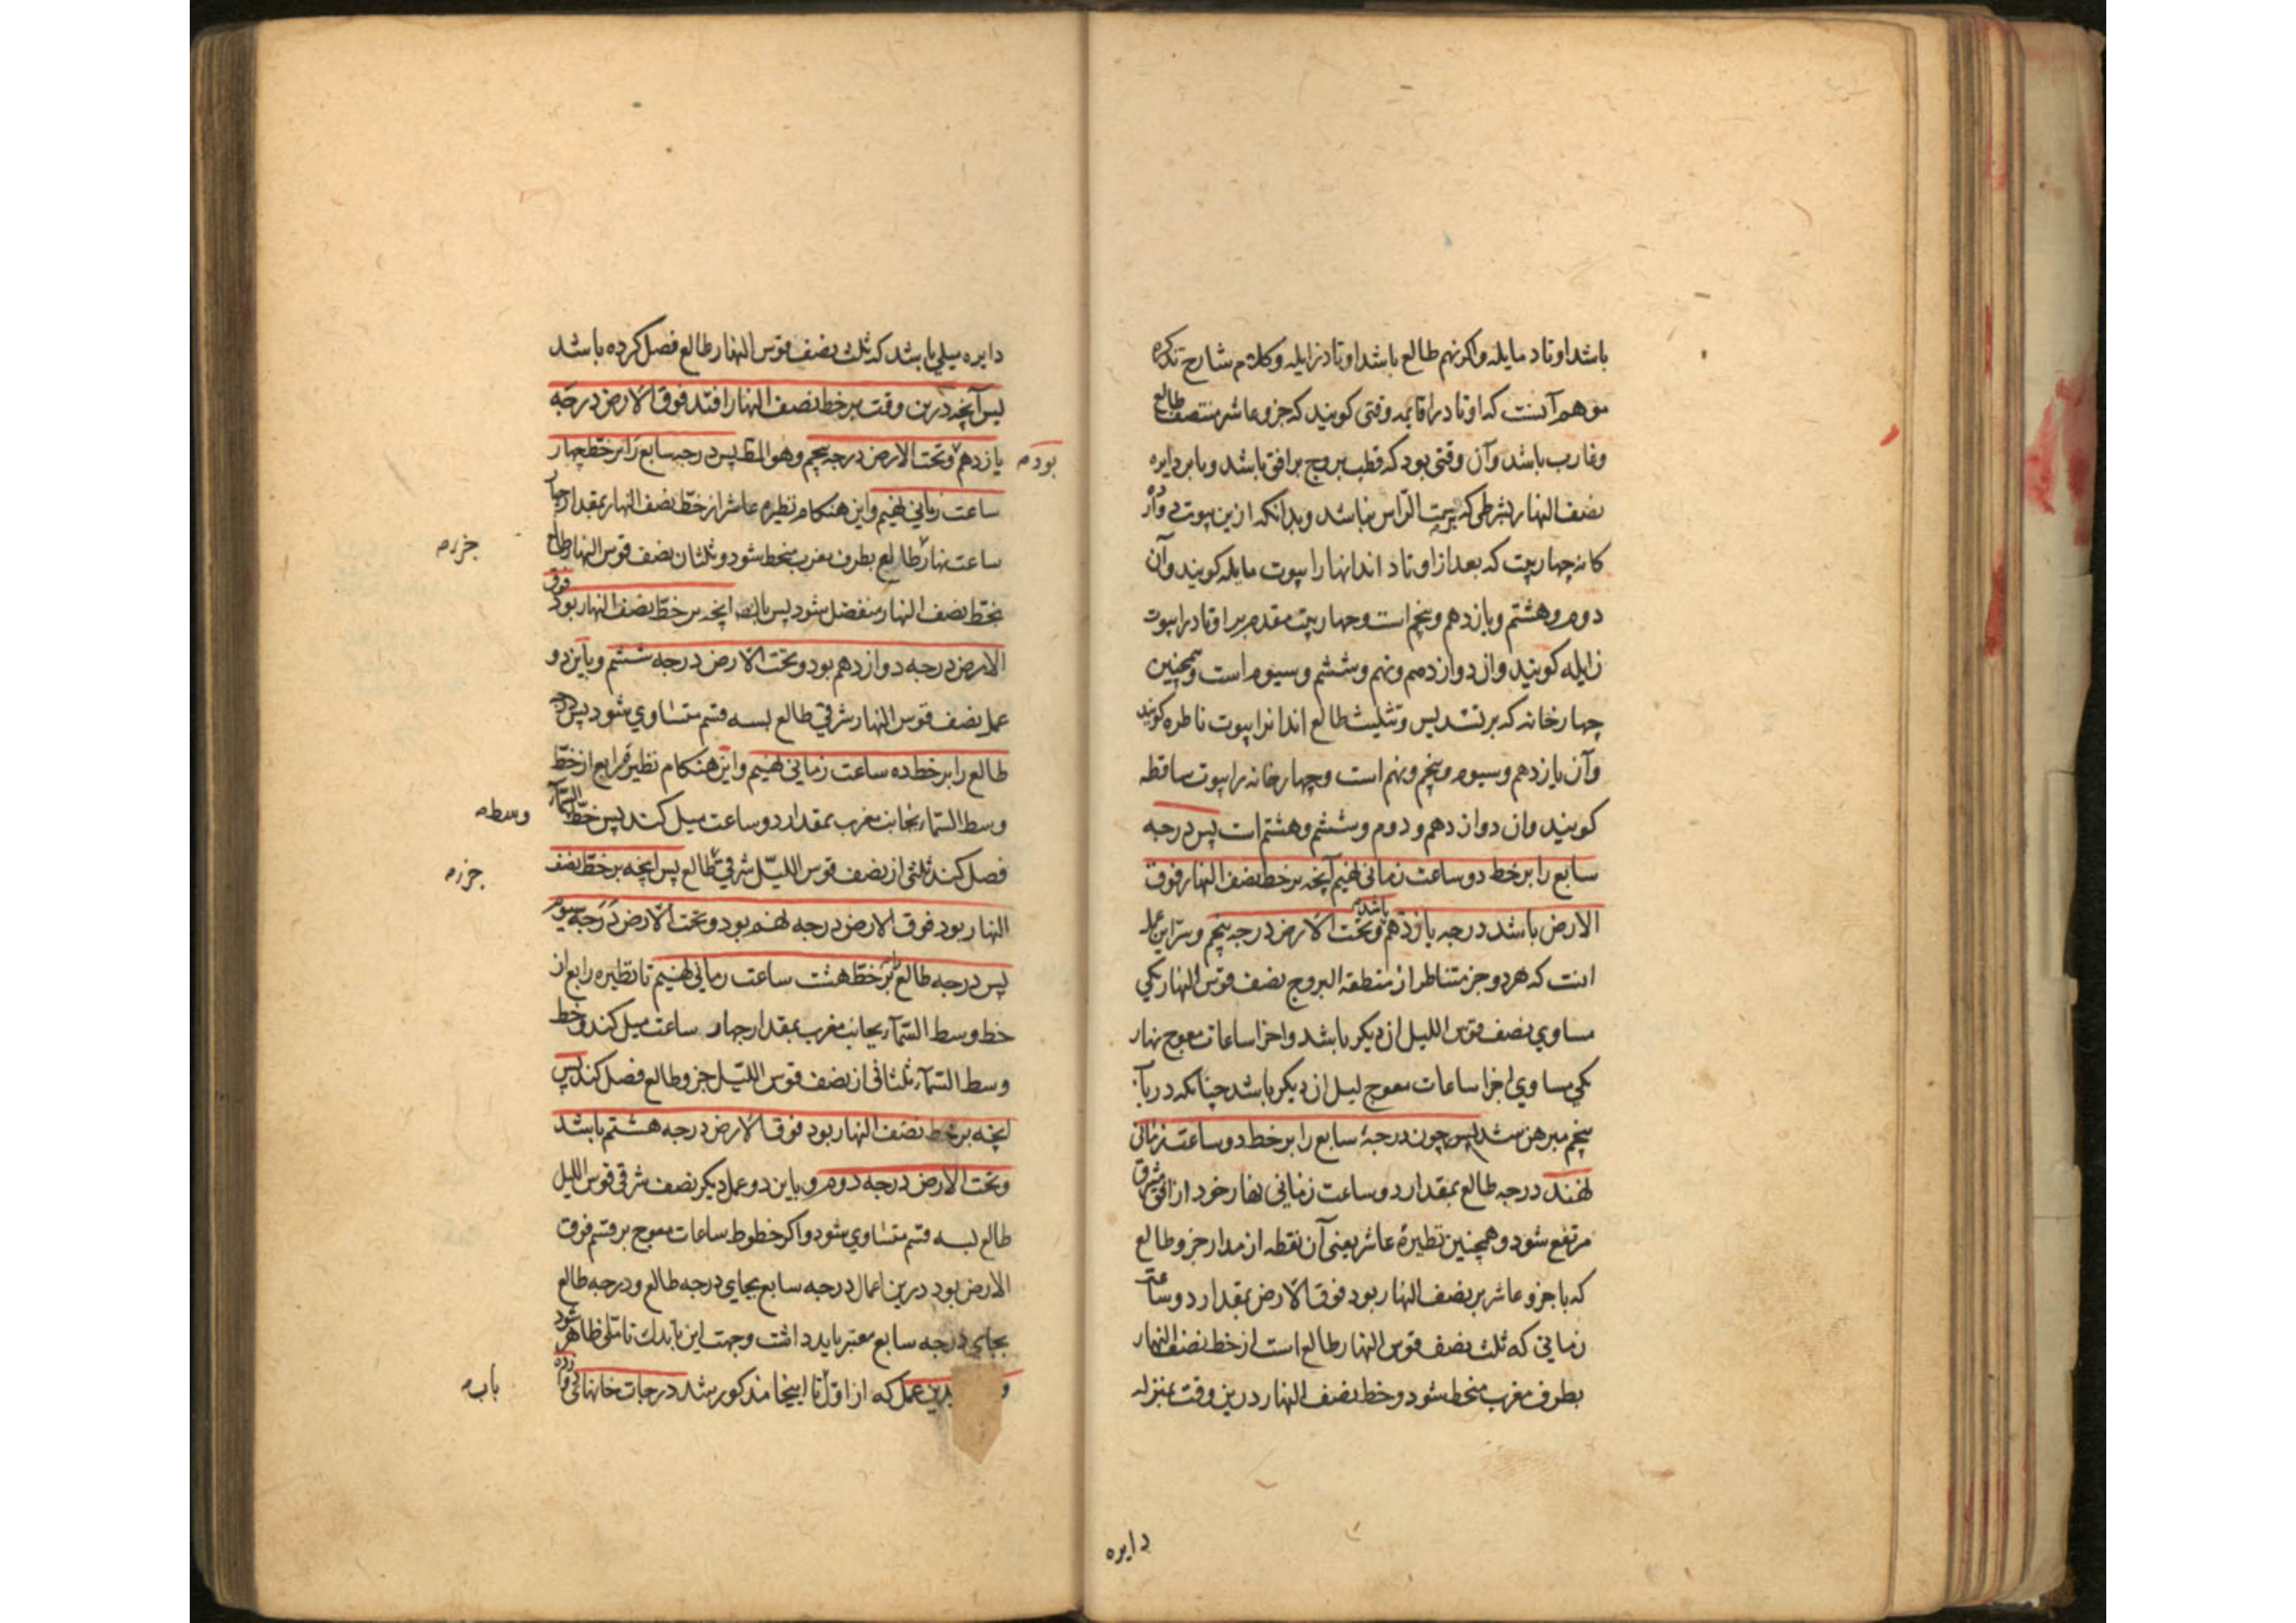 باشد اوتاد مایله و اکر نهم طالع باشد اوتاد زایله و کلام شارح تذکره
موهم آنست که اوتاد را قایمه وقتی کویند که جزو عاشر منتصف طالع
و غارب باشد و آن وقتی بود که قطب بروج بر افق باشد و یا بر دایره
نصف النهار بشرطی که بسمت الراس نباشد و بدانکه ازین بیوت دوازده
کانه چهار بیت که بعد از اوتاد اند انها را بیوت مایله کویند و آن
دوم و هشتم و یازدهم و پنجم است و چهار بیت مقدم بر اوتاد را بیوت
زایله کویند و ان دوازدهم و نهم و ششم و سیوم است و همچنین
چهار خانه که بر تسدیس و تثلیث طالع اند انرا بیوت ناظره کویند
و آن یازدهم و سیوم و پنجم و نهم است و چهار خانه را بیوت ساقطه
کویند و ان دوازدهم و دوم و ششم و هشتم است پس درجه
سابع را بر خط دو ساعت زمانی نهیم آنچه بر خط نصف النهار فوق
الارض باشد درجه یازدهم باشد و تحت الارض درجه پنجم و سر این عمل
انست که هر دو جز متناظر از منطقة البروج نصف قوس النهار یکی
مساوی نصف قوس اللیل ان دیکر باشد و اجزا ساعات معوج نهار
یکی مساوی اجزا ساعات معوج لیل ان دیکر باشد چنانکه در باب
پنجم مبرهن شد پس چون درجهٔ سابع را بر خط دو ساعت زمانی
نهند درجه طالع بمقدار دو ساعت زمانی نهار خود از افق شرقی
مرتفع شود و همچنین نظیرهٔ عاشر یعنی آن نقطه از مدار جزو طالع
که با جزو عاشر بر نصف النهار بود فوق الارض بمقدار دو ساعت
زمانی که ثلث نصف قوس النهار طالع است از خط نصف النهار
بطرف مغرب منحط شود و خط نصف النهار درین وقت بمنزله
دایره
دایره میلی باشد که ثلث نصف قوس النهار طالع فصل کرده باشد
پس آنچه درین وقت بر خط نصف النهار افتد فوق الارض درجه
یازدهم و تحت الارض درجه پنجم وهو المط پس درجه سابع را بر خط چهار
بود
ساعت زمانی نهیم و این هنکام نظیره عاشر از خط نصف النهار بمقدار چهار
ساعت نهار طالع بطرف مغرب منحط شود و ثلثان نصف قوس النهار طالع
جزو
بخط نصف النهار منفصل شود پس انچه بر خط نصف النهار بود فوق
الارض درجه دوازدهم بود و تحت الارض درجه ششم و باین دو
عمل نصف قوس النهار شرقی طالع بسه قسم متساوی شود پس درجه
طالع را بر خط ده ساعت زمانی نهیم و این هنکام نظیره رابع از خط
وسط السماء بجانب مغرب بمقدار دو ساعت میل کند پس خط السماء
وسط
فصل کند ثلثی از نصف قوس اللیل شرقی طالع پس انچه بر خط نصف
جزو
النهار بود فوق الارض درجه نهم بود و تحت الارض درجه سیوم
پس درجه طالع بر خط هشت ساعت زمانی نهیم تا نظیره رابع از
خط وسط السماء بجانب مغرب بمقدار چهار ساعت میل کند و خط
وسط السماء ثلثانی از نصف قوس اللیل جزو طالع فصل کند پس
انچه بر خط نصف النهار بود فوق الارض درجه هشتم باشد
و تحت الارض درجه دوم و باین دو عمل دیکر نصف شرقی قوس اللیل
طالع بسه قسم متساوی شود و اکر خطوط ساعات معوج بر قسم فوق
الارض بود درین اعمال درجه سابع بجای درجه طالع و درجه طالع
بجای درجه سابع معتبر باید داشت و جهت این باندک تاملی ظاهر شود
بدین عمل که از اول تا اینجا مذکور شد درجات خانهای دوازده
باب